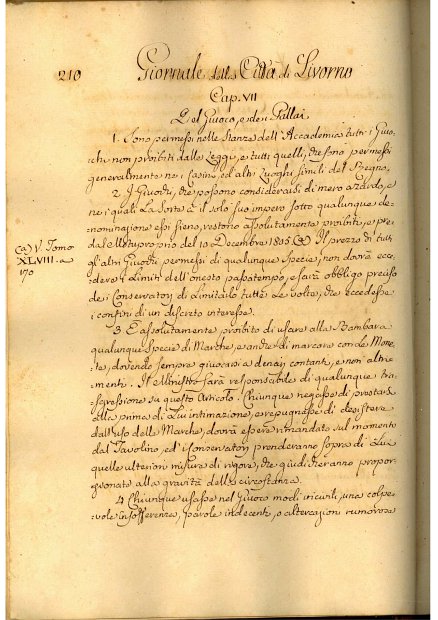 210
Giornale della Città di Livorno
Cap. VII
Del Giuoco, e dei Pallai
1. Sono permessi nelle Stanze dell'Accademia tutti i Giuo-
chi non proibiti dalle Leggi, e tutti quelli, che sono permessi
generalmente nei Casini, ed altri Luoghi simili del Regno,
2. I Giuochi, che possono considerarsi di mero azzardo, e
nei quali La Sorte à il solo suo impero sotto qualunque de-
nominazione essi sieno, restono assolutamente proibiti, e pre-
dal Motuproprio del 10 Decembre 1805. Il prezzo di tutti
gl'altri Giuochi permessi di qualunque Specie, non dovrà ecce-
dere i Limiti dell'onesto passatempo, e sarà obbligo preciso
dei Conservatori di Limitarlo tutte Le volte, che eccedesse
i confini di un discreto interesse.
(a) V. Tomo
XLVIII. a
170
3. È assolutamente proibito di usare alla Bambara
qualunque Specie di Marche, e anche di marcare con Le Mone-
te, dovendo sempre giuocarsi a denari contanti, e non altri-
menti. Il Ministro sarà responsabile di qualunque tra-
sgressione su questo Articolo. Chiunque negasse di prestarsi
alla prima di Lui intimazione, e repugnasse di desistere
dall'uso delle Marche, dovrà essere rimandato sul momento
dal Tavolino, ed i Conservatori prenderanno sopra di Lui
quelle ulteriori misure di rigore, che giudicheranno propor-
zionate alla gravità delle circostanze.
4. Chiunque usasse nel Giuoco modi incivili, una colpe-
vole insofferenza, parole indecenti, o altercazioni rumorose